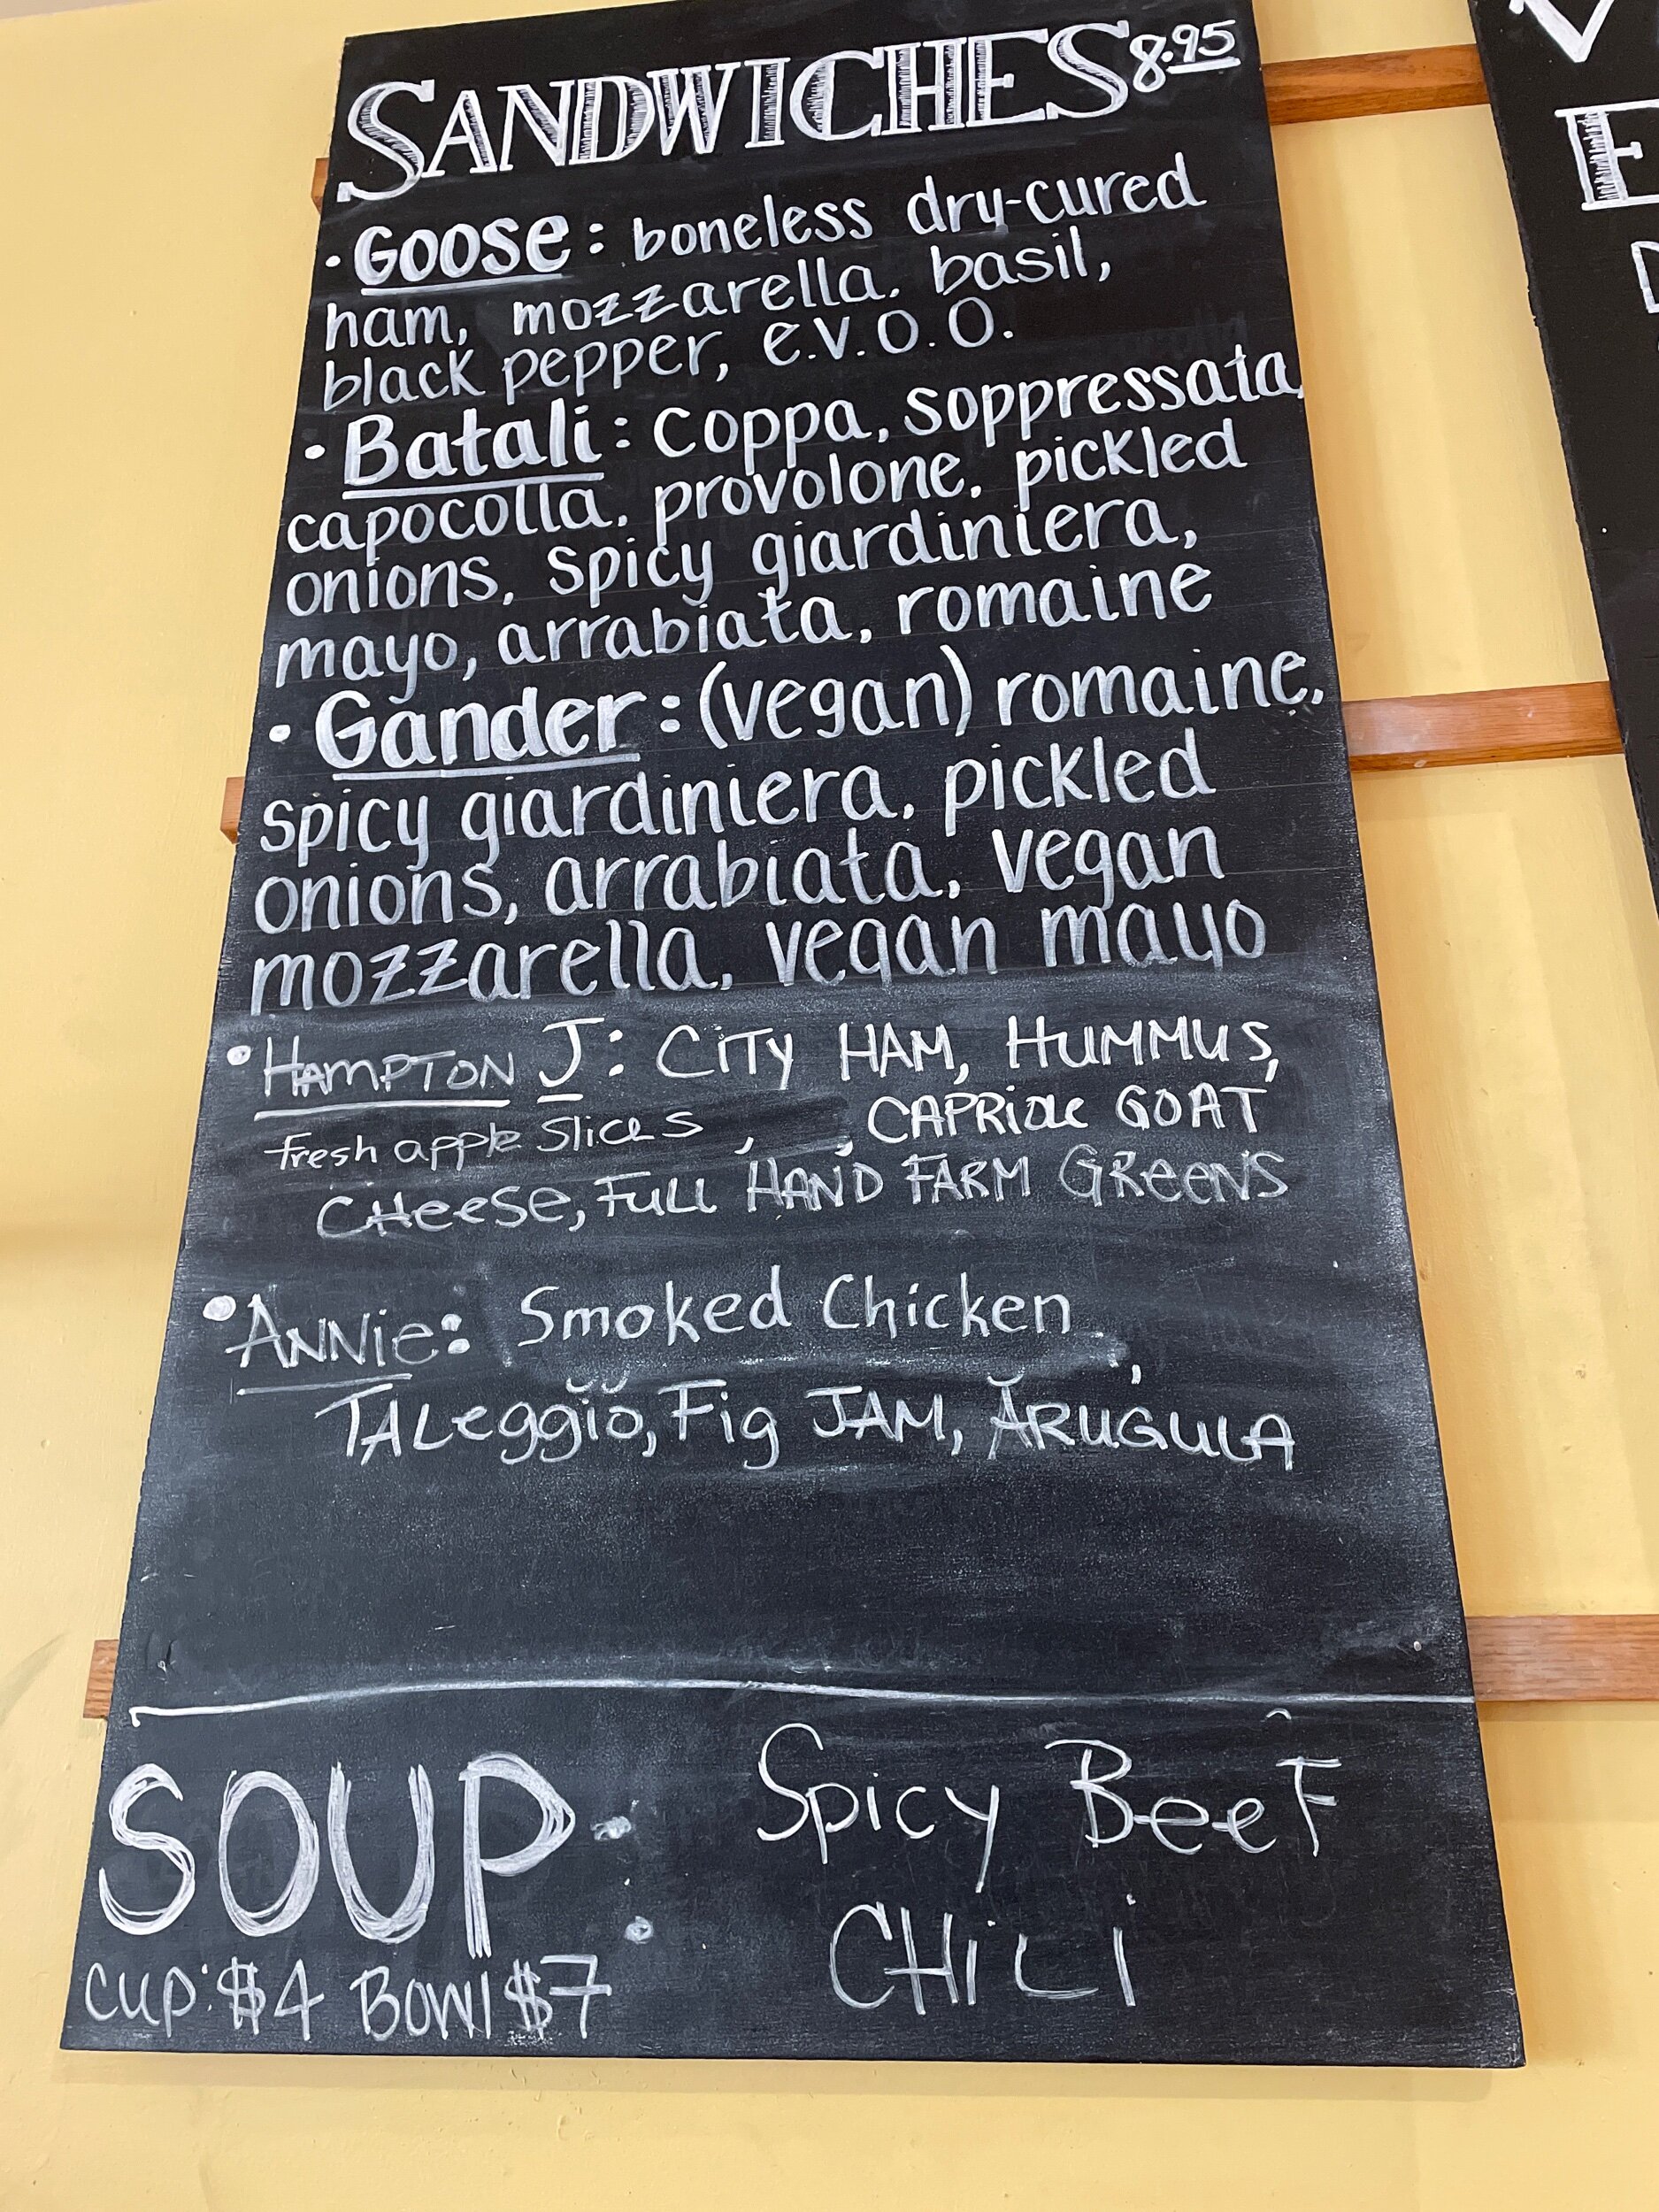 SANDWICHES 8.95
• Goose: boneless dry-cured
ham, mozzarella, basil,
black pepper, e.v.o.o.
• Batali: coppa, soppressata,
capocolla, provolone, pickled
onions, spicy giardiniera,
mayo, arrabiata, romaine
• Gander: (vegan) romaine,
spicy giardiniera, pickled
onions, arrabiata, vegan
mozzarella, vegan mayo
• HAMPTON J: CITY HAM, HUMMUS,
fresh apple slices, , CAPRIOLE GOAT
CHEESE, FULL HAND FARM GREENS
• ANNIE: Smoked Chicken,
TALEGGIO, FIG JAM, ARUGULA
SOUP: Spicy BEEF
CHILI
CUP: $4 BOWl $7